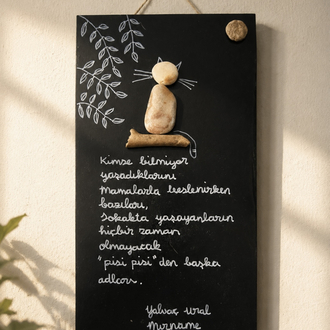 Kimse bilmiyor
yaşadıklarını
Mamalarla beslenirken
bazıları,
Sokakta yaşayanların
hiçbir zaman
olmayacak
"pisi pisi" den başka
adları.
Yalvaç Ural
Mırname